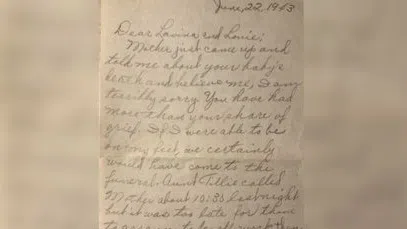 June, 22, 1943
Dear Lavina and Louie;
Mother just came up and
told me about your baby's
death and believe me, I am
terribly sorry. You have had
more than your share of
grief. If I were able to be
on my feet, we certainly
would have come to the
funeral. Aunt Tillie called
Mother about 10:30 last night
but it was too late for them
to